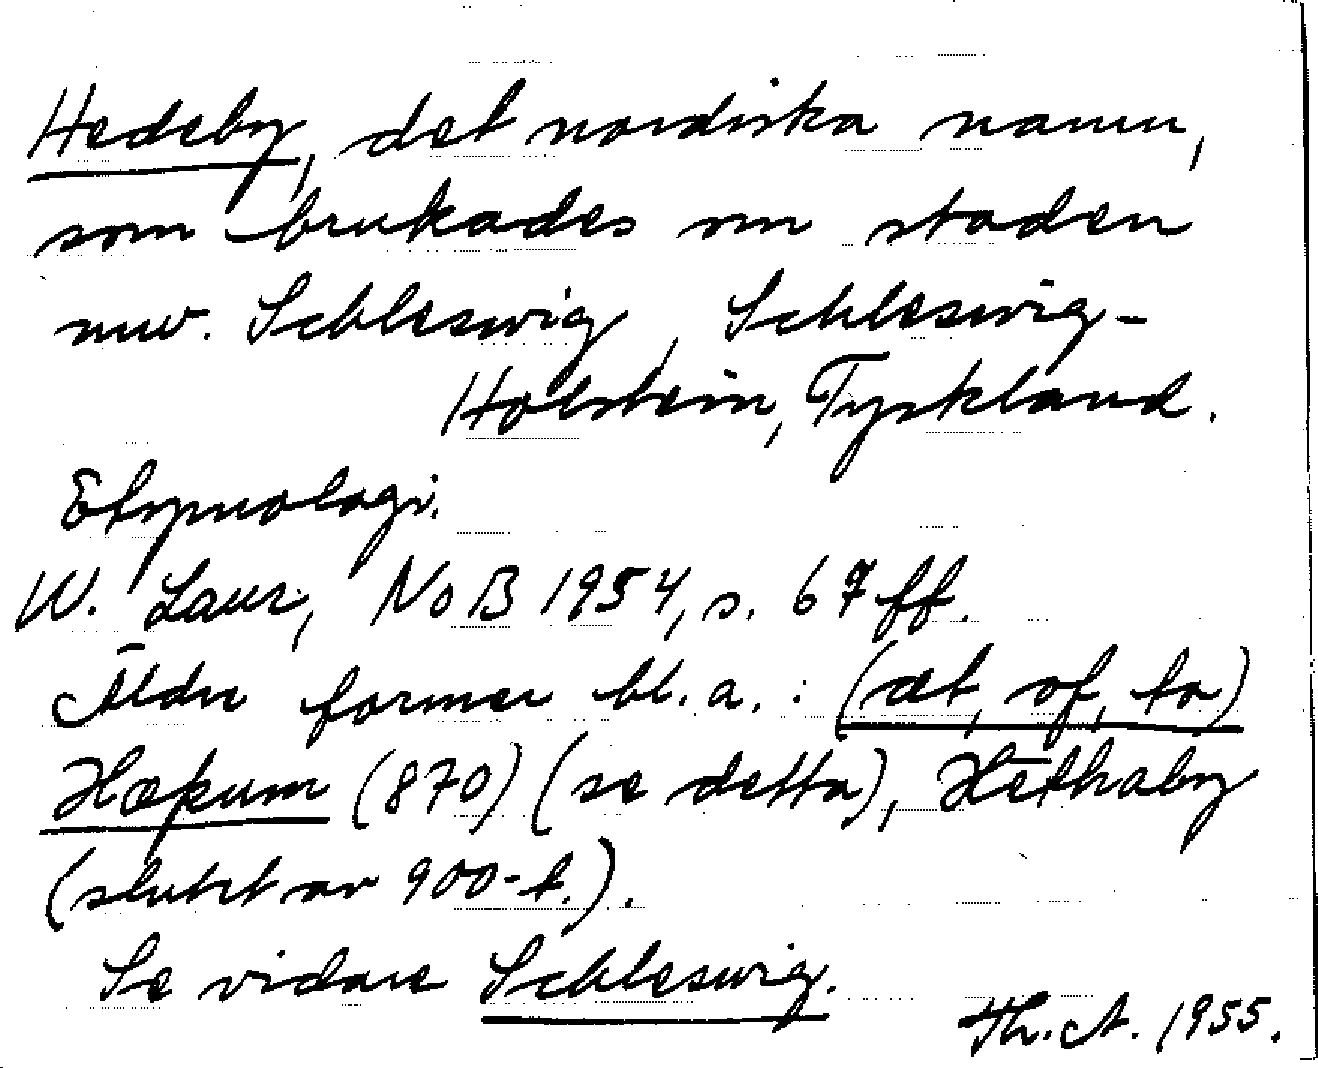 Hedeby, det nordiska namn,
som brukades om staden
nuv. Schleswig, Schleswig-
Holstein, Tyskland.
Etymologi.
W. Laur, NoB 1954, s. 67 ff.
Äldre former bl.a.: (æt, of, to)
Hæþum (870) (se detta), Hēthaby
(slutet av 900-t.).
Se vidare Schleswig.
Th. A. 1955.